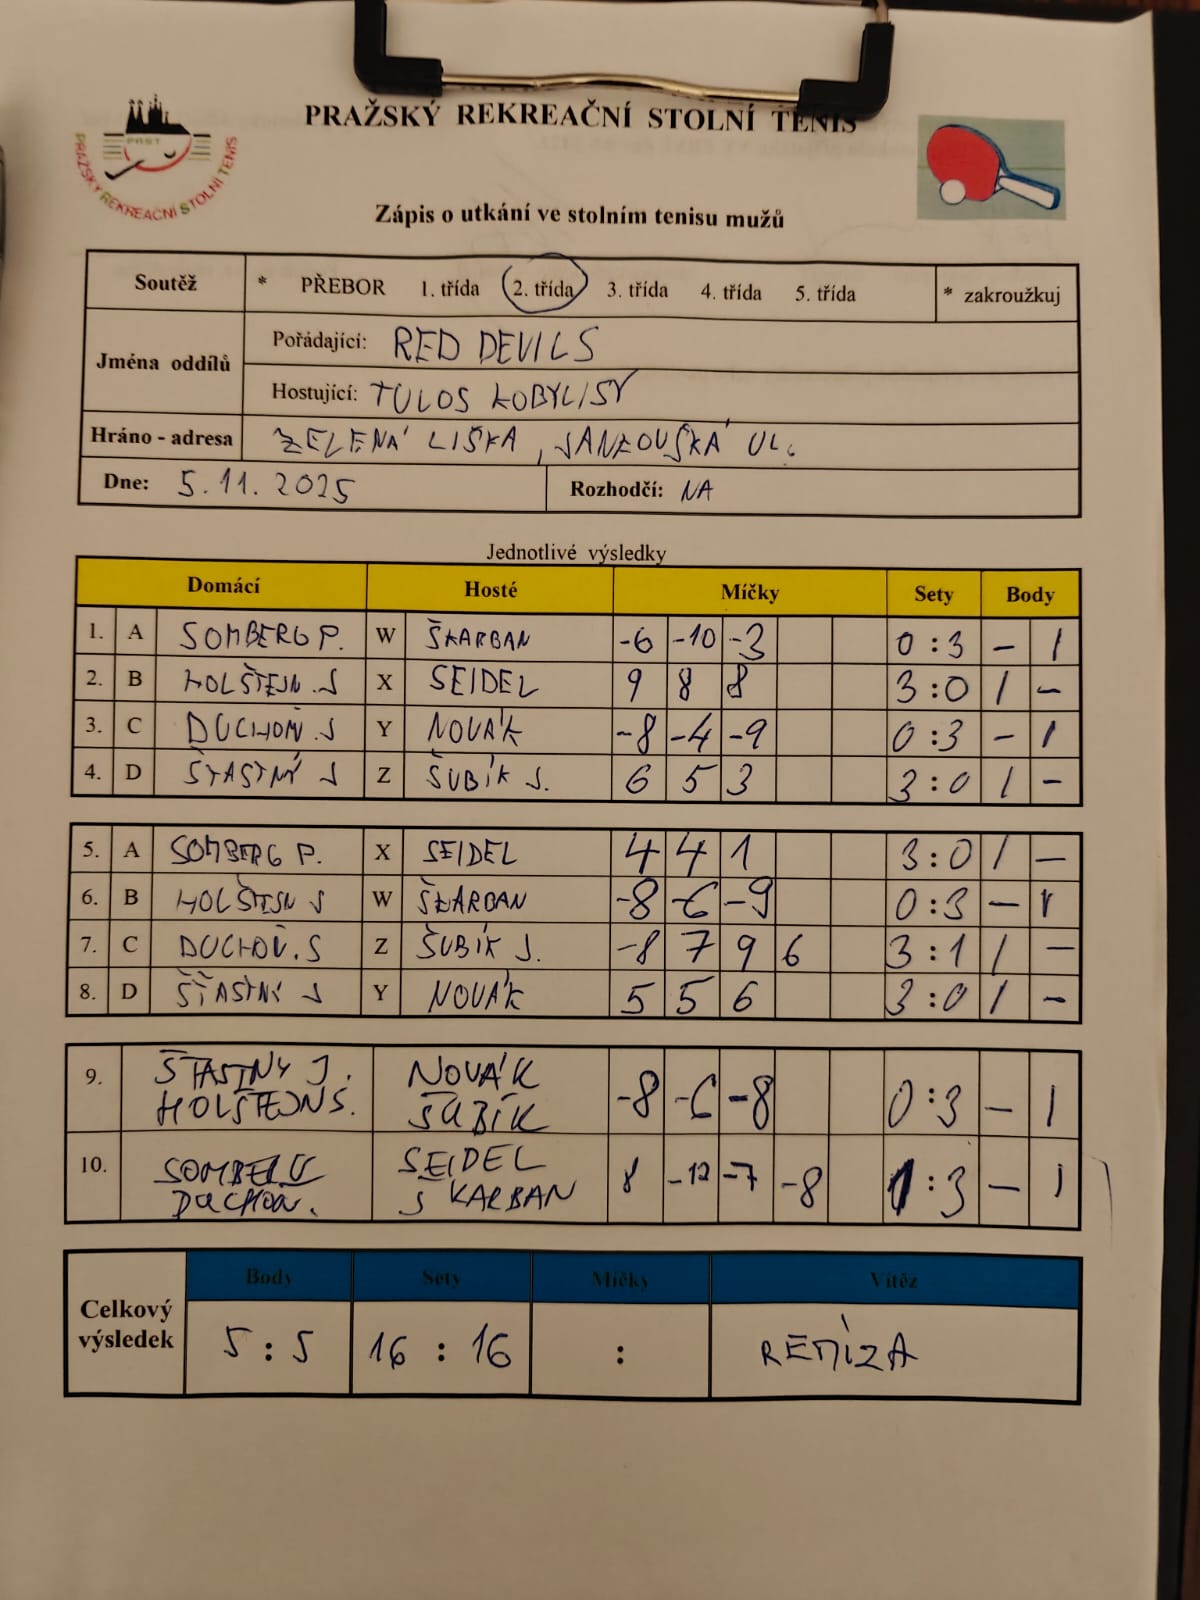 PRAŽSKÝ REKREAČNÍ STOLNÍ TENIS
PRST
PRAŽSKÝ REKREAČNÍ STOLNÍ TENIS
Zápis o utkání ve stolním tenisu mužů
Soutěž * PŘEBOR 1. třída 2. třída 3. třída 4. třída 5. třída * zakroužkuj
Jména oddílů
Pořádající: RED DEVILS
Hostující: TULOS KOBYLISY
Hráno - adresa ZELENÁ LIŠKA, JANKOVSKÁ UL.
Dne: 5.11.2025 Rozhodčí: NA
Jednotlivé výsledky
Domácí Hosté Míčky Sety Body
1. A SOMBERG P. W ŠKARBAN -6 -10 -3 0:3 - 1
2. B HOLŠTEJN S X SEIDEL 9 8 8 3:0 1 -
3. C DUCHOŇ S Y NOVÁK -8 -4 -9 0:3 - 1
4. D ŠŤASTNÝ J Z ŠUBÍK J. 6 5 3 3:0 1 -
5. A SOMBERG P. X SEIDEL 4 4 1 3:0 1 -
6. B HOLŠTEJN S W ŠKARBAN -8 -6 -9 0:3 - 1
7. C DUCHOŇ.S Z ŠUBÍK J. -8 7 9 6 3:1 1 -
8. D ŠŤASTNÝ J Y NOVÁK 5 5 6 3:0 1 -
9. ŠŤASTNÝ J. NOVÁK -8 -6 -8 0:3 - 1
HOLŠTEJN S. ŠUBÍK
10. SOMBERG SEIDEL 8 -12 -7 -8 1:3 - 1
DUCHOŇ. ŠKARBAN
Body Sety Míčky Vítěz
Celkový výsledek 5:5 16:16 : REMÍZA